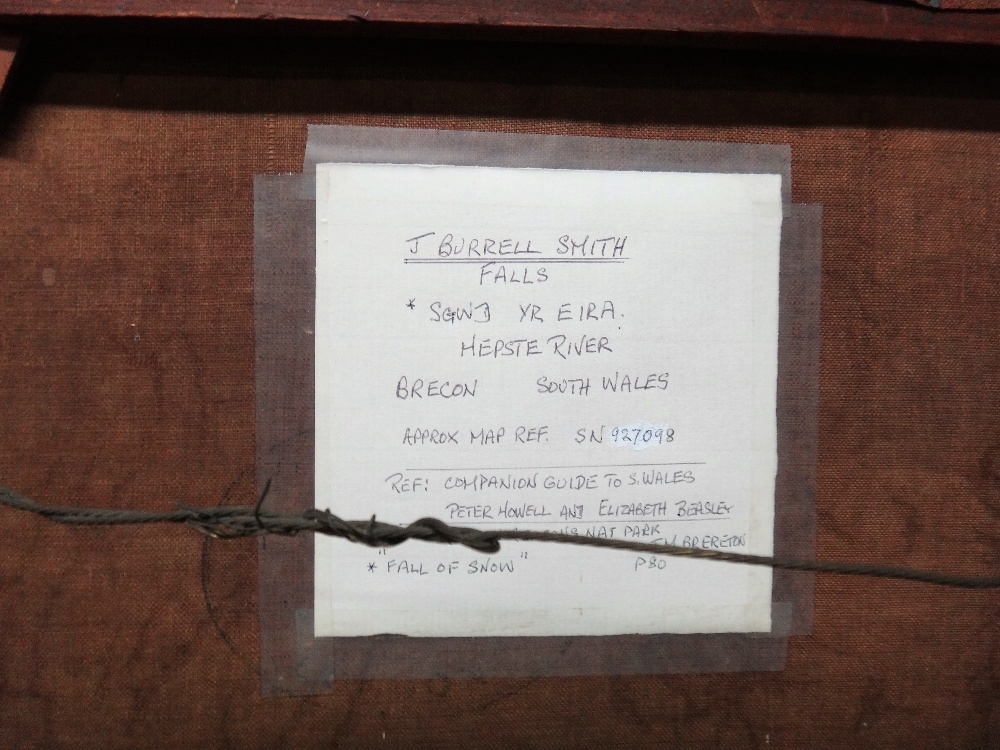 J BURRELL SMITH
FALLS
* SGWD YR EIRA.
HEPSTE RIVER
BRECON SOUTH WALES
APPROX MAP REF. SN 927098
REF: COMPANION GUIDE TO S. WALES
PETER HOWELL AND ELIZABETH BEASLEY
NAT PARK
BRERETON
* "FALL OF SNOW" P80